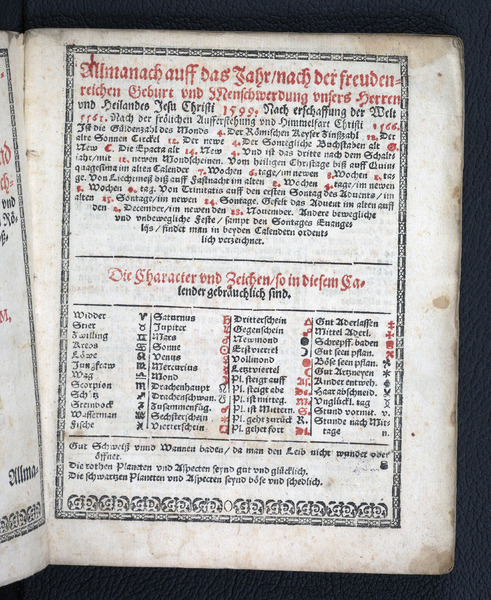 Allmanach auff das Jahr/nach der freuden-
reichen Geburt vnd Menschwerdung vnsers Herren
vnd Heilandes Jesu Christi 1599. Nach erschaffung der Welt
5561. Nach der frölichen Aufferstehung vnd Himmelfart Christi 1566.
Ist die Güldenzahl des Monds 4. Der Römischen Keyser Zinßzahl 12. Der
alte Sonnen Circkel 12. Der newe 4. Der Sontagliche Buchstaben alt G.
New C. Die Epacta alt 14. New 4. Vnd ist das dritte nach dem Schalt-
jahr/mit 12. newen Mondscheinen. Vom heiligen Christage biß auff Quin
quagesima im alten Calender 7. Wochen 6. tage/im newen 8. Wochen 2. ta-
ge. Von Liechtmeß biß auff Fastnacht im alten 2. Wochen 4. tage/im newen
3. Wochen 0. tag. Von Trinitatis auff den ersten Sontag des Aduents/im
alten 25. Sontage/im newen 24. Sontage. Gefelt das Aduent im alten auff
den 2. December/im newen den 28. November. Andere bewegliche
vnd vnbewegliche Feste/sampt den Sontages Euange-
lijs/findet man in beyden Calendern ordent-
lich verzeichnet.
Die Character vnd Zeichen/so in diesem Ca-
lender gebräuchlich sind.
Widder ♈ Saturnus ♄ Dritterschein △ Gut Aderlassen
Stier ♉ Jupiter ♃ Gegenschein ☍ Mittel Aderl.
Zwilling ♊ Mars ♂ Newmond Schrepff. baden
Krebs ♋ Sonne ☉ Erstviertel Gut seen pflan.
Löwe ♌ Venus ♀ Vollmond Böse seen pflan.
Jungfraw ♍ Mercurius ☿ Letztviertel Gut Artzneyen
Wag ♎ Mond ☽ Pl. steigt auff Kinder entweh.
Scorpion ♏ Drachenhaupt ☊ Pl. steigt abe Haar abschneid.
Schütz ♐ Drachenschwan. ☋ Pl. ist mitteg. Vnglückl. tag
Steinbock ♑ Zusammenfüg. ☌ Pl. ist Mittern. Stund vormit. v.
Wasserman ♒ Sechsterschein ⚹ Pl. geht zurück R. Stunde nach Mit-
Fische ♓ Vierterschein □ Pl. gehet fort tage n.
Gut Schweiß vnnd Wannen baden/da man den Leib nicht wundet oder
öffnet.
Die rothen Planeten vnd Aspecten seynd gut vnd glücklich.
Die schwartzen Planeten vnd Aspecten seynd böse vnd schedlich.
Allma-